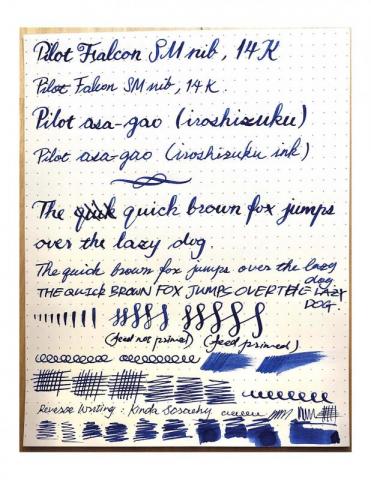 Pilot Falcon SM nib, 14K
Pilot Falcon SM nib, 14K.
Pilot asa-gao (iroshizuku)
Pilot asa-gao (iroshizuku ink)
The quick quick brown fox jumps
over the lazy dog.
The quick brown fox jumps over the lazy
dog.
THE QUICK BROWN FOX JUMPS OVER THE LAZY
DOG.
(feed not primed) (feed primed)
Reverse Writing : Kinda Scratchy